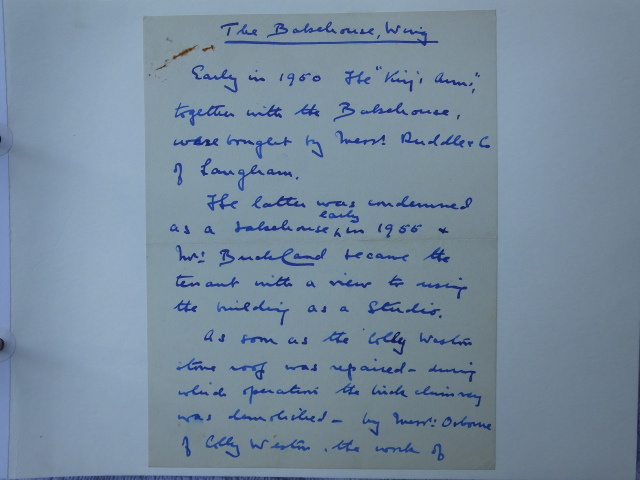 The Bakehouse, Wing
Early in 1950 the "King's Arms",
together with the Bakehouse,
were bought by Messrs Ruddle & Co
of Langham.
The latter was condemned
as a bakehouse early in 1955 &
Mrs Buckland became the
tenant with a view to using
the building as a Studio.
As soon as the Colly Weston
stone roof was repaired – during
which operation the brick chimney
was demolished – by Messrs. Osborne
of Colly Weston. the work of